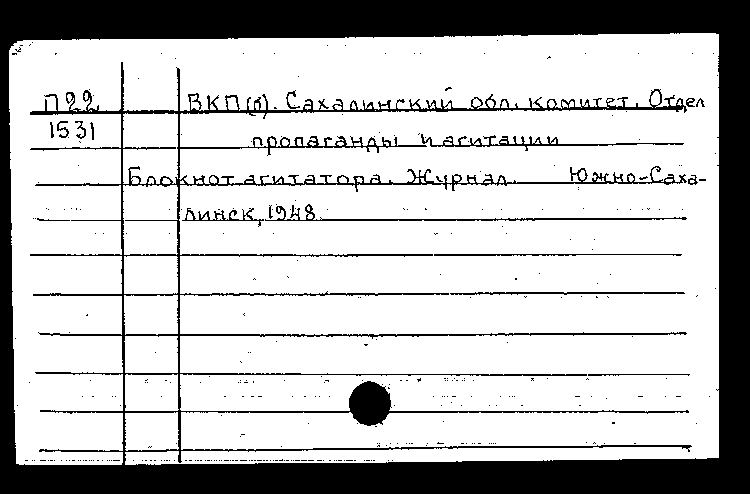 П22 ВКП(б). Сахалинский обл. комитет. Отдел
1531 пропаганды и агитации
Блокнот агитатора. Журнал. Южно-Саха-
линск, 1948